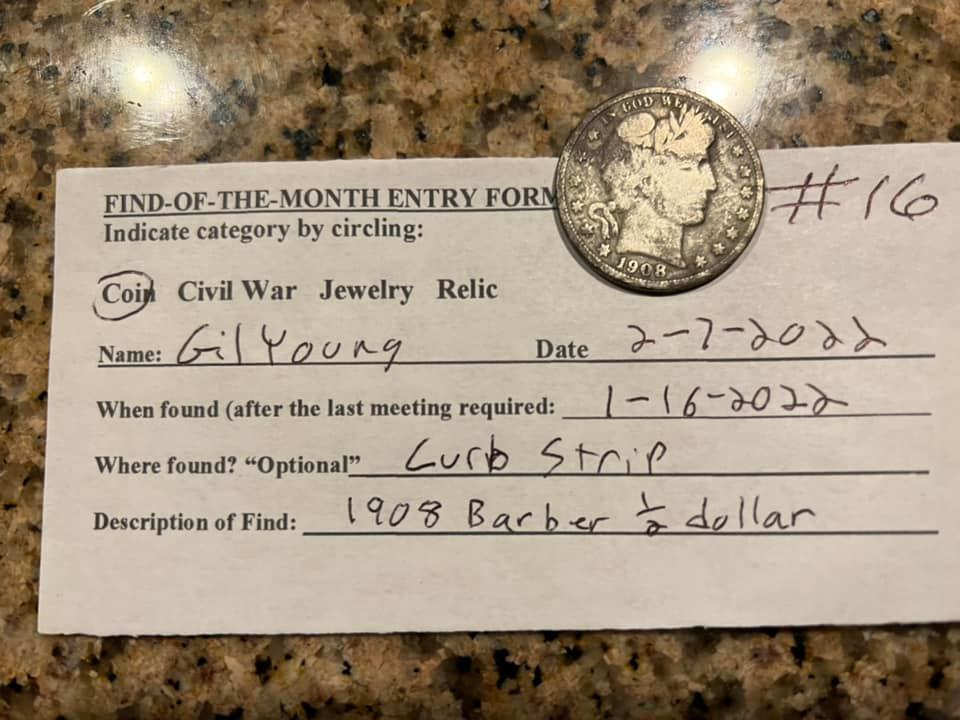 IN GOD WE TRUST
1908
#16
FIND-OF-THE-MONTH ENTRY FORM
Indicate category by circling:
Coin Civil War Jewelry Relic
Name: Gil Young Date 2-7-2022
When found (after the last meeting required: 1-16-2022
Where found? “Optional” Curb Strip
Description of Find: 1908 Barber 1/2 dollar